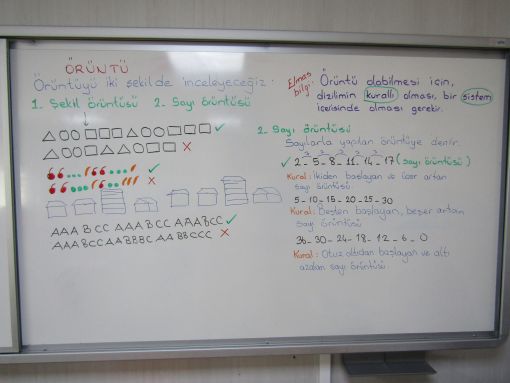 ÖRÜNTÜ
Örüntüyü iki şekilde inceleyeceğiz.
1. Şekil örüntüsü 2. Sayı örüntüsü
AAABCC AAABCC AAABCC
AAABCCAABBBC AABBCCC
Elmas bilgi:
Örüntü olabilmesi için,
dizilimin kurallı olması, bir sistem
içerisinde olması gerekir.
2. Sayı örüntüsü
Sayılarla yapılan örüntüye denir.
3 3 3 3 3
2-5-8-11-14-17 (sayı örüntüsü)
Kural: İkiden başlayan ve üçer artan
sayı örüntüsü
5-10-15-20-25-30
Kural: Beşten başlayan, beşer artan
sayı örüntüsü
36-30-24-18-12-6-0
Kural: Otuz altıdan başlayan ve altı
azalan sayı örüntüsü